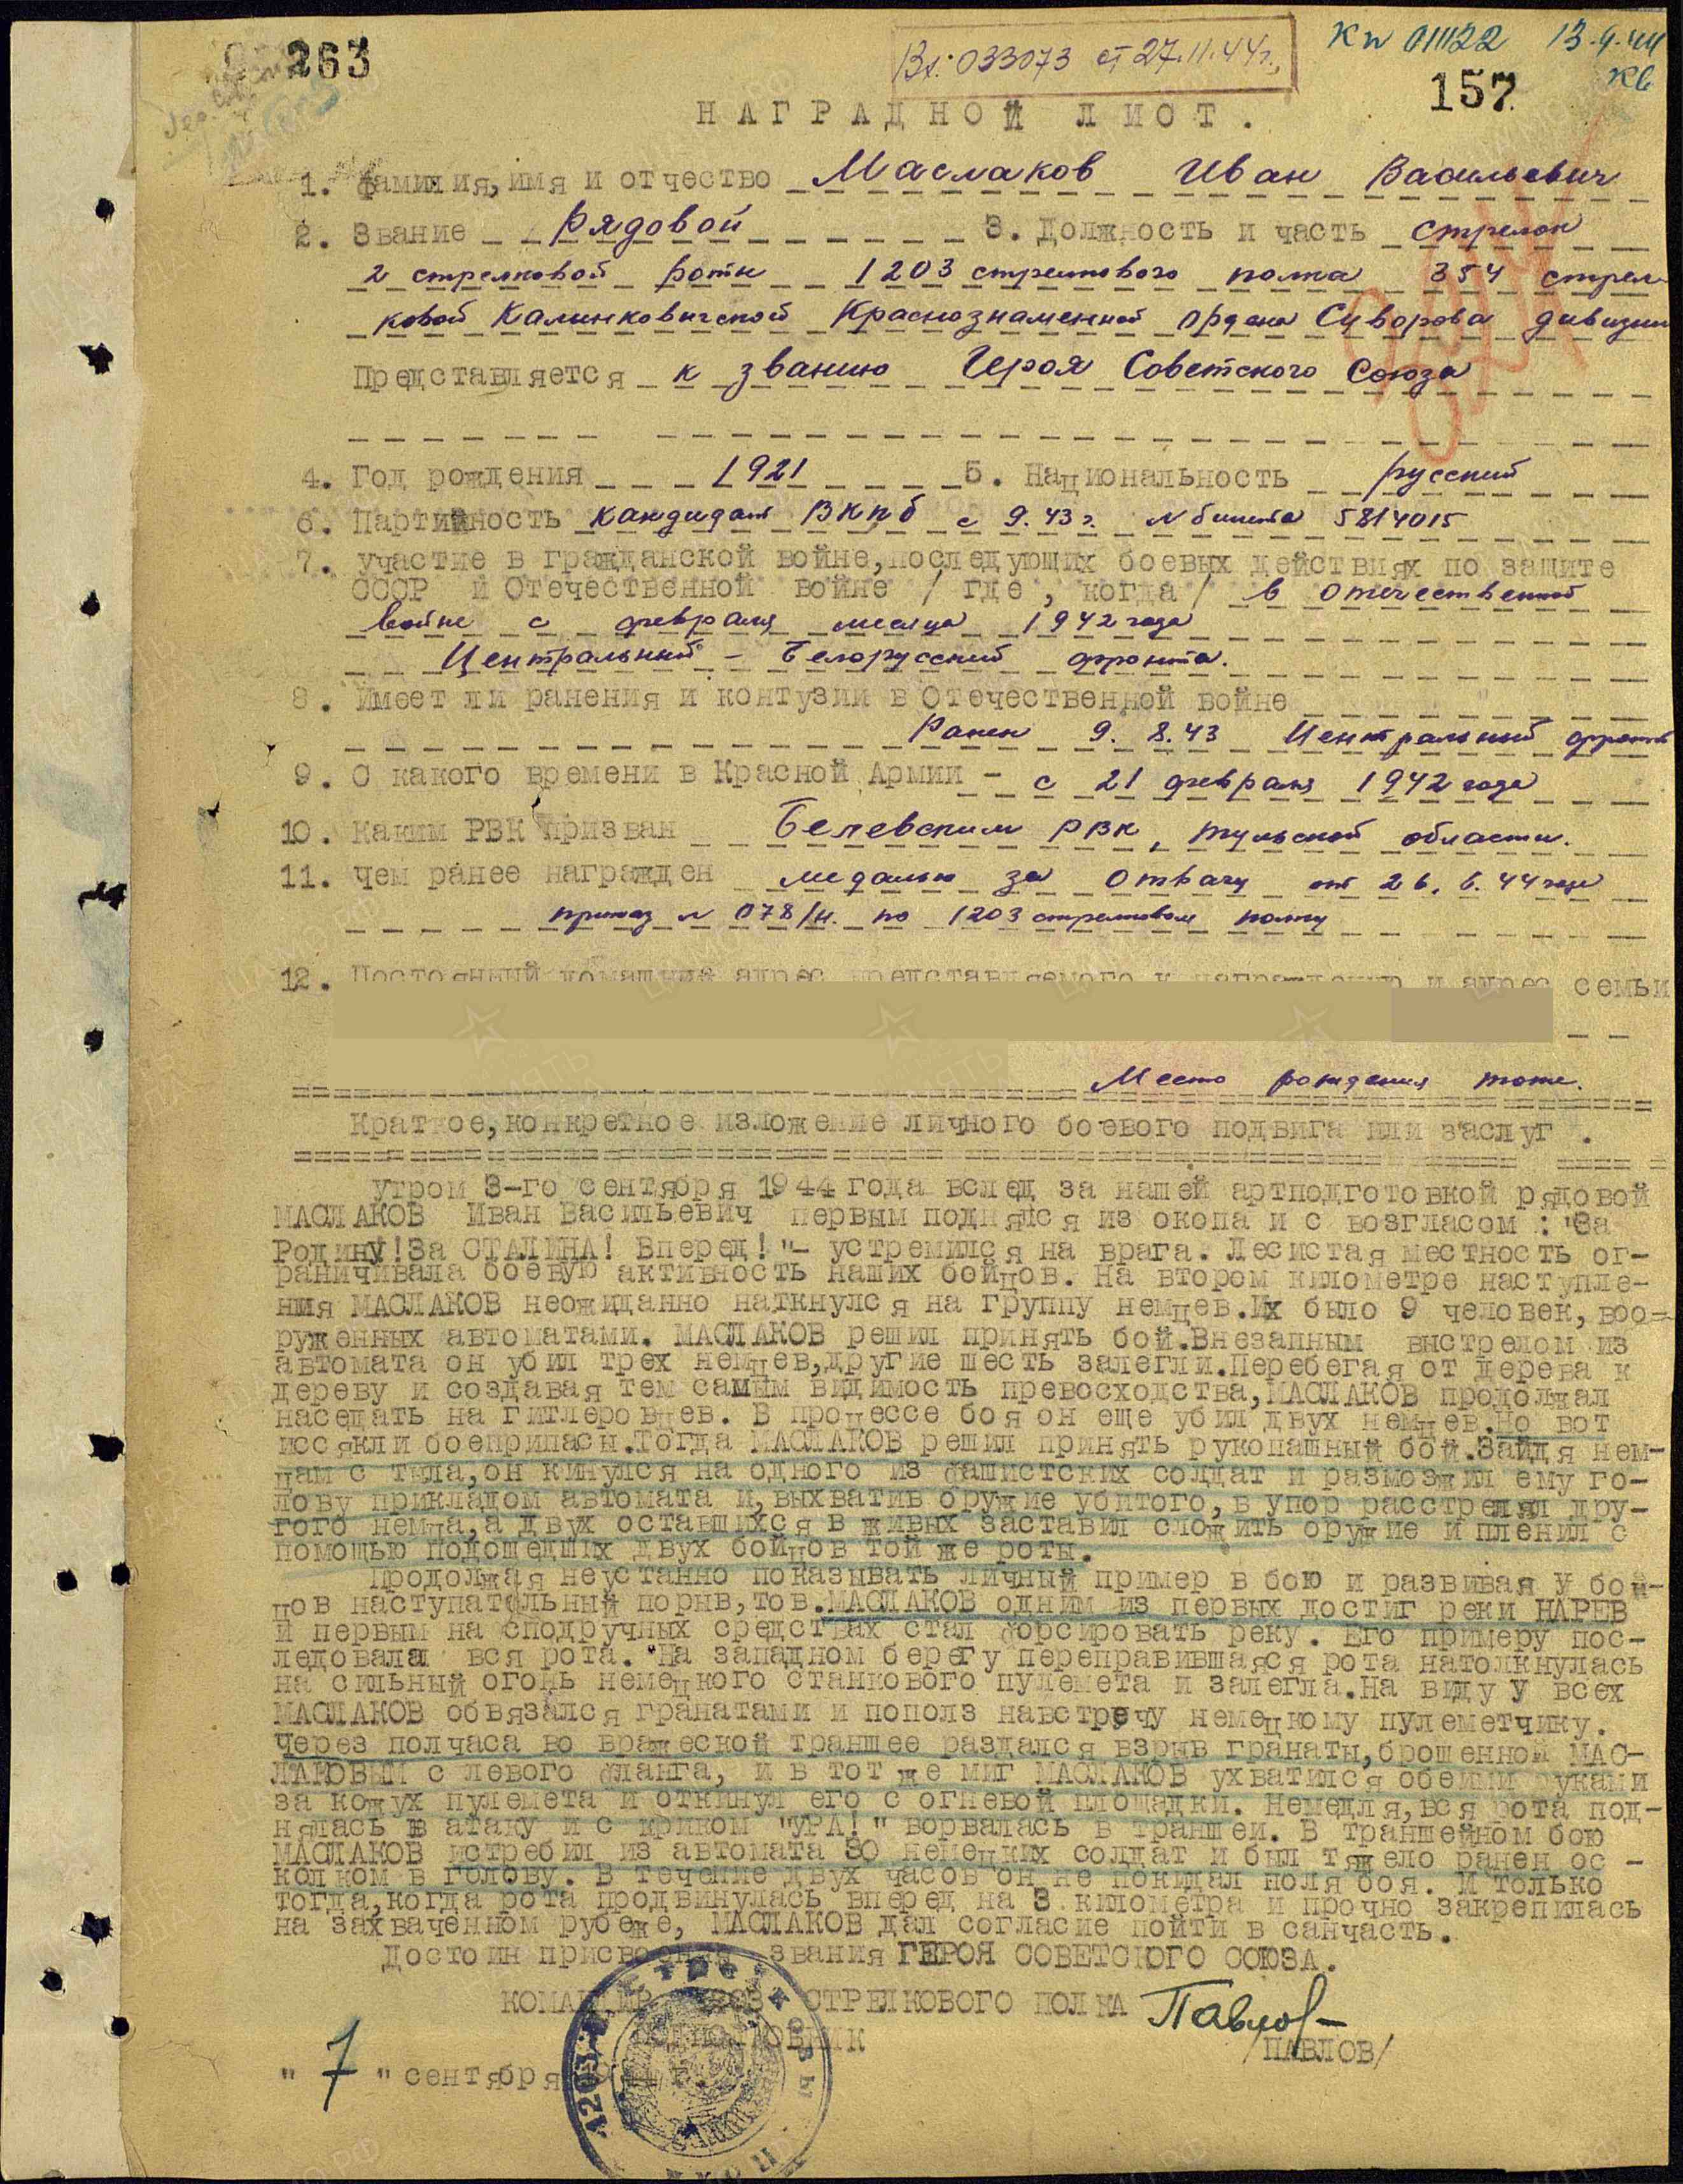 263
Вх: 033073 от 27.11.44г.
157
НАГРАДНОЙ ЛИСТ.
1. Фамилия, имя и отчество Маслаков Иван Васильевич
2. Звание Рядовой 3. Должность и часть стрелок
2 стрелковой роты 1203 стрелкового полка 354 стрел-
ковой Калинковичской Краснознаменной ордена Суворова дивизии
Представляется к званию Героя Советского Союза
4. Год рождения 1921 5. Национальность русский
6. Партийность кандидат ВКПб с 9.43г. № билета 5814015
7. участие в гражданской войне, последующих боевых действиях по защите
СССР и Отечественной войне / где, когда / в отечественной
войне с февраля месяца 1942 года
Центральный - Белорусский фронта.
8. Имеет ли ранения и контузии в Отечественной войне
Ранен 9.8.43 Центральный фронт
9. С какого времени в Красной Армии - с 21 февраля 1942 года
10. Каким РВК призван Белевским РВК, Тульской области.
11. Чем ранее награжден медалью за Отвагу от 26.6.44 года
приказ № 078/н. по 1203 стрелковом полку
12. Постоянный домашний адрес представляемого к награждению и адрес семьи
Место рождения тоже.
Краткое, конкретное изложение личного боевого подвига или заслуг.
утром 3-го сентября 1944 года вслед за нашей артподготовкой рядовой
МАСЛАКОВ Иван Васильевич первым поднялся из окопа и с возгласом : "За
Родину! За СТАЛИНА! Вперед!"- устремился на врага. Лесистая местность ог-
раничивала боевую активность наших бойцов. На втором километре наступле-
ния МАСЛАКОВ неожиданно наткнулся на группу немцев. Их было 9 человек, воо-
руженных автоматами. МАСЛАКОВ решил принять бой. Внезапным выстрелом из
автомата он убил трех немцев, другие шесть залегли. Перебегая от дерева к
дереву и создавая тем самым видимость превосходства, МАСЛАКОВ продолжал
наседать на гитлеровцев. В процессе боя он еще убил двух немцев. Но вот
иссякли боеприпасы. Тогда МАСЛАКОВ решил принять рукопашный бой. Зайдя нем-
цам с тыла, он кинулся на одного из фашистских солдат и размозжил ему го-
лову прикладом автомата и, выхватив оружие убитого, в упор расстрелял дру-
гого немца, а двух оставшихся в живых заставил сложить оружие и пленил с
помощью подошедших двух бойцов той же роты.
Продолжая неустанно показывать личный пример в бою и развивая у бой-
цов наступательный порыв, тов. МАСЛАКОВ одним из первых достиг реки НАРЕВ
и первым на сподручных средствах стал форсировать реку. Его примеру пос-
ледовала вся рота. На западном берегу переправившаяся рота натолкнулась
на сильный огонь немецкого станкового пулемета и залегла. На виду у всех
МАСЛАКОВ обвязался гранатами и пополз навстречу немецкому пулеметчику.
Через полчаса во вражеской траншее раздался взрыв гранаты, брошенной МАС-
ЛАКОВЫМ с левого фланга, и в тот же миг МАСЛАКОВ ухватился обеими руками
за кожух пулемета и откинул его с огневой площадки. Немедля, вся рота под-
нялась в атаку и с криком "УРА!" ворвалась в траншеи. В траншейном бою
МАСЛАКОВ истребил из автомата 30 немецких солдат и был тяжело ранен ос -
колком в голову. В течение двух часов он не покидал поля боя. И только
тогда, когда рота продвинулась вперед на 3 километра и прочно закрепилась
на захваченном рубеже, МАСЛАКОВ дал согласие пойти в санчасть.
Достоин присвоения звания ГЕРОЯ СОВЕТСКОГО СОЮЗА.
КОМАНДИР 1203 СТРЕЛКОВОГО ПОЛКА Павлов
ПОДПОЛКОВНИК /ПАВЛОВ/
" 7 " сентября